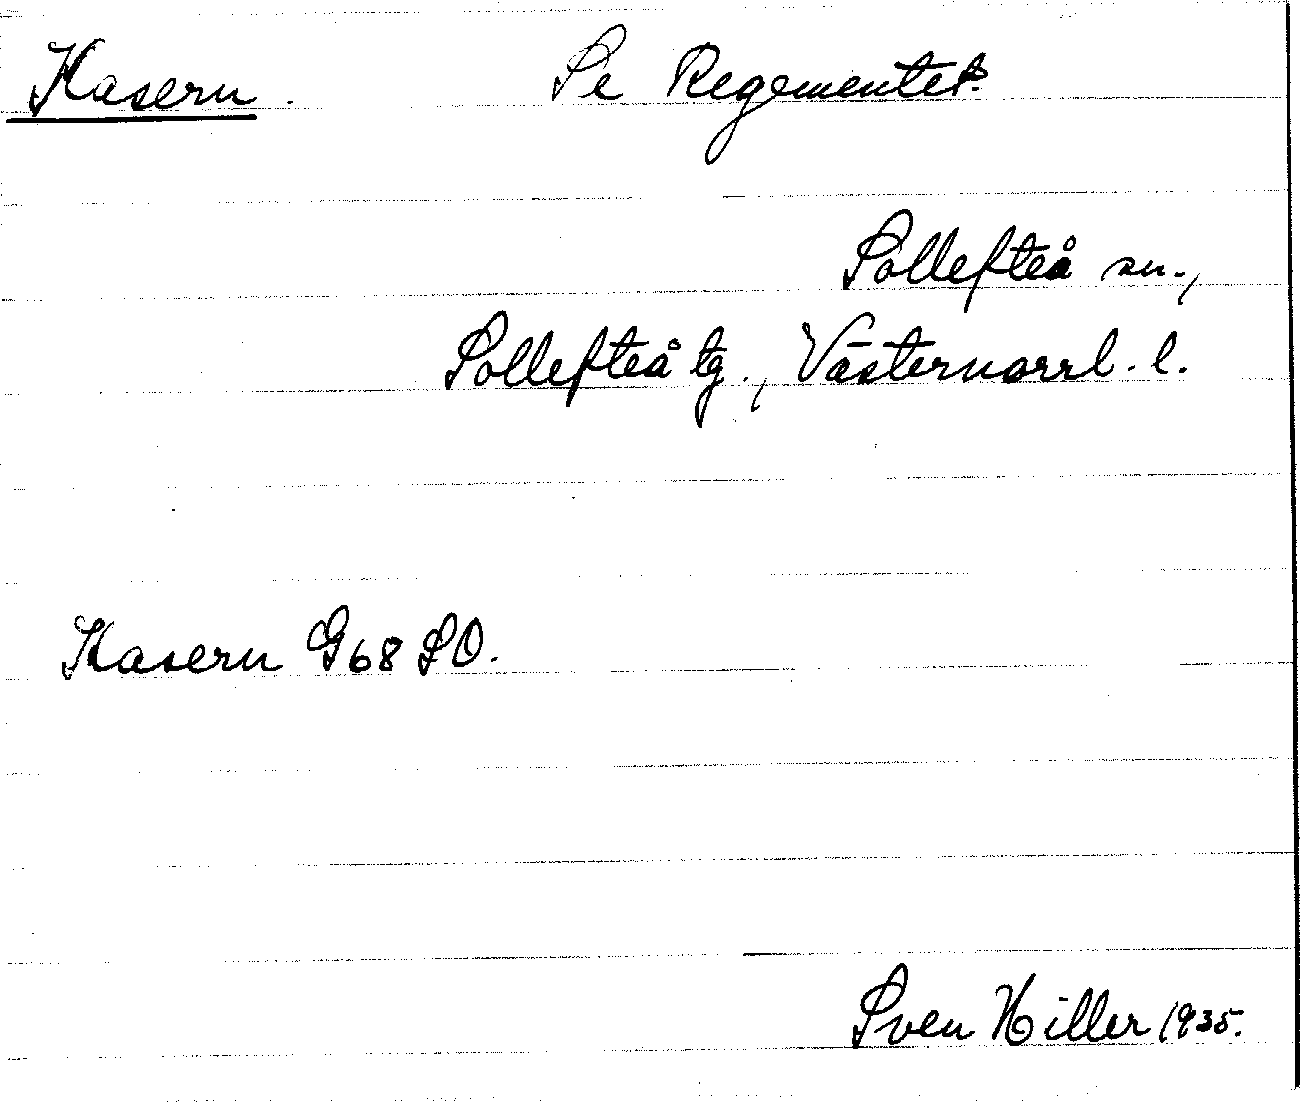 Kasern. Se Regementet.
Sollefteå sn.,
Sollefteå tg., Västernorrl. l.
Kasern G68 SO.
Sven Hiller 1935.